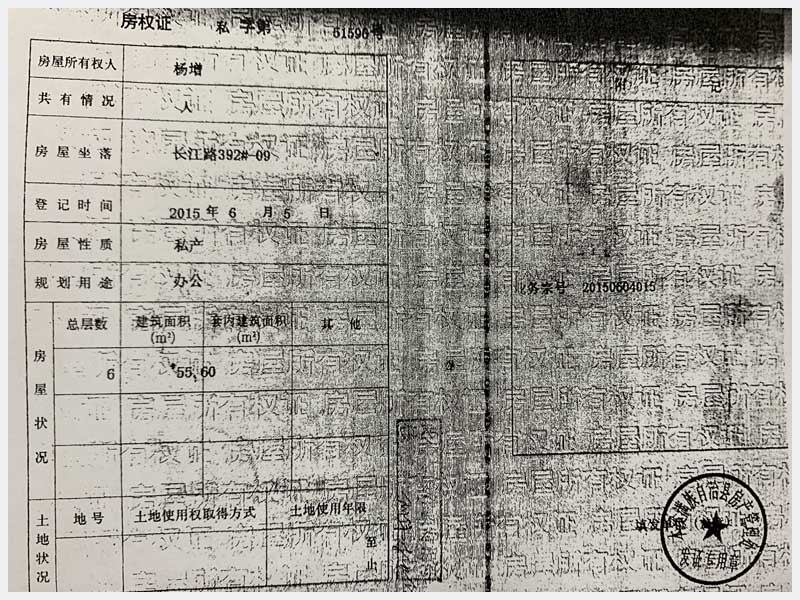 房权证 私 字第 61596号
房屋所有权人 杨增
共有情况 人
房屋坐落 长江路392#-09
登记时间 2015 年 6 月 5 日
房屋性质 私产
规划用途 办公
房屋状况
总层数 建筑面积(m²) 套内建筑面积(m²) 其他
6 *55.60
土地状况
地号 土地使用权取得方式 土地使用年限
至
止
附 记
业务案号 20150604015
填发单位
满族自治县房产管理
发证专用章